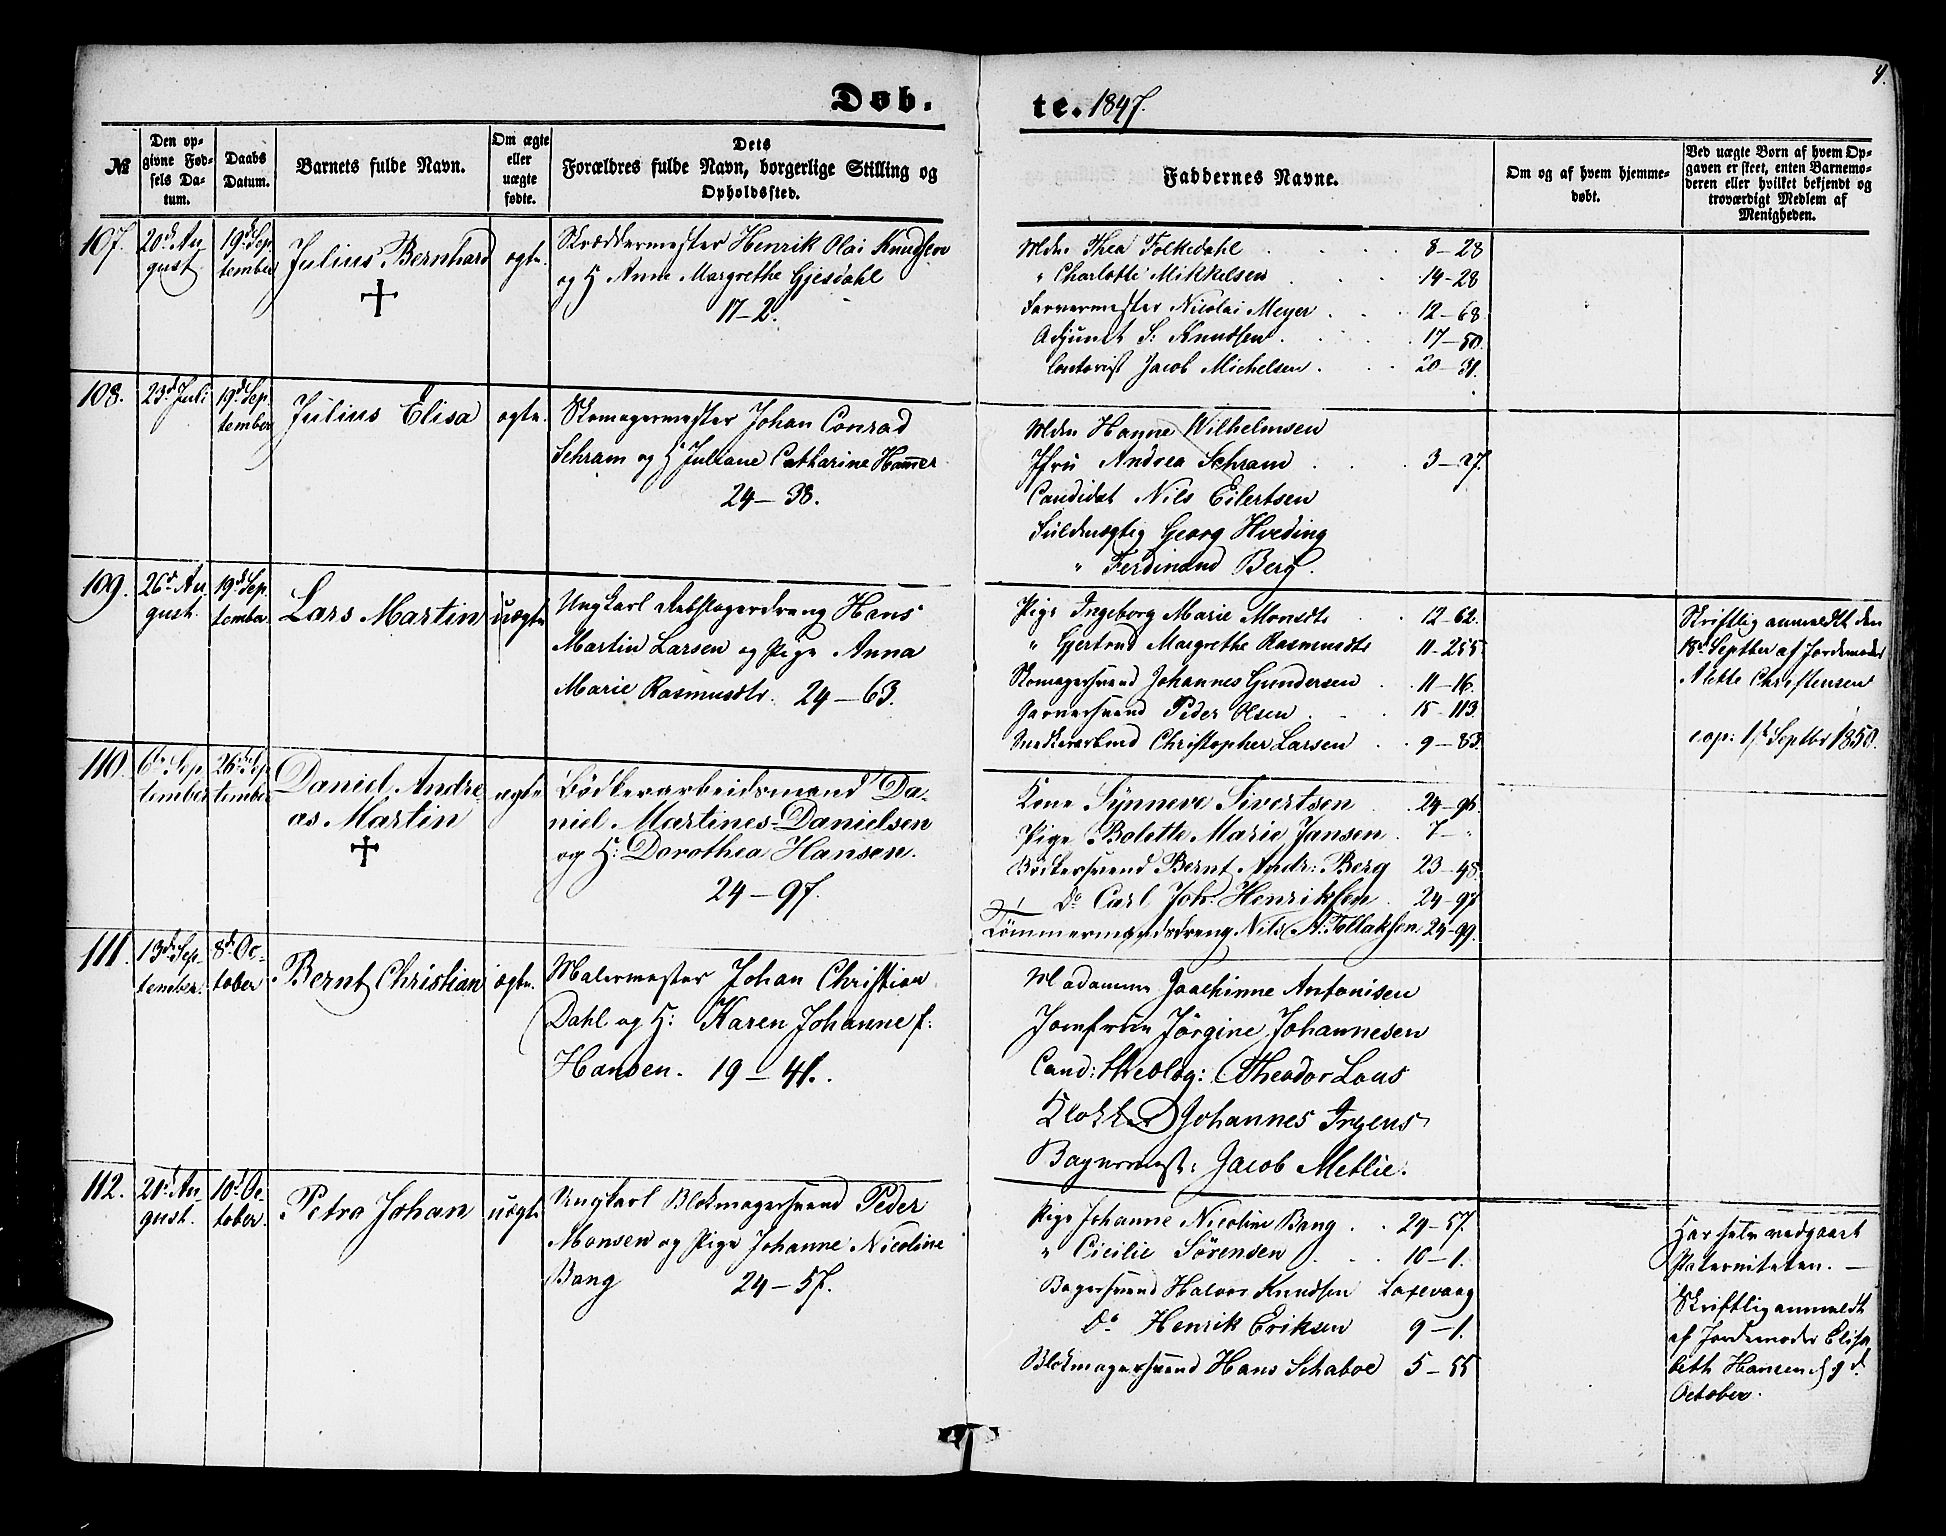 4.
Døb.
te. 1847.
№
Den opgivne Fødsels Datum.
Daabs Datum.
Barnets fulde Navn.
Om ægte eller uægte fødte.
Dets Forældres fulde Navn, borgerlige Stilling og Opholdssted.
Faddernes Navne.
Om og af hvem hjemmedøbt.
Ved uægte Børn af hvem Opgaven er skeet, enten Barnemoderen eller hvilket bekjendt og troværdigt Medlem af Menigheden.
107.
20de August.
19de September
Julius Bernhard
ægte.
Skræddermester Henrik Olai Knudsen
og H. Anne Margrethe Gjesdahl
17-2.
Mdm Thea Folkedahl 8-28
" Charlotte Mikkelsen 14-28
Farvermester Nicolai Meyer 12-68
Adjunct S. Knudsen 17-50.
Contorist Jacob Michelsen 20-31.
108.
23d Juli
19d September
Julius Elisa
ægte.
Skomagermester Johan Conrad
Schram og H Juliane Catharine Hammer
24-38.
Mdm Hanne Wilhelmsen
Jfru Andrea Schram 3-27.
Candidat Nils Eilertsen
Fuldmægtig Georg Hveding
" Ferdinand Berg.
109.
26d August.
19d September
Lars Martin
uægte
Ungkarl Rebslagerdreng Hans
Martin Larsen og Pige Anna
Marie Rasmusdtr. 24-63.
Pige Ingeborg Marie Monsdtr 12-62.
" Gjertrud Margrethe Rasmusdtr 11-255
Skomagersvend Johannes Gundersen 11-16.
Garversvend Peder Olsen 15-113.
Christopher Larsen 9-83.
Skriftlig anmeldt den
18d Septber af Jordemoder
Alette Christensen
cop: 1ste Septbr 1850.
110.
6te September
26de September
Daniel Andreas Martin
ægte
Bødkerarbeidsmand Daniel
Martines Danielsen
og H: Dorothea Hansen.
24-97.
Kone Synneve Sivertsen 24-96.
Pige Bolette Marie Jansen 7-"
Bødkersvend Bernt Andr: Berg 23-48.
Do Carl Joh. Henriksen 24-97
Tømmermandsdreng Nils A. Follaksen 24-99.
111.
13de September.
8de October
Bernt Christian
ægte.
Malermester Johan Christian
Dahl og H: Karen Johanne f:
Hansen. 19-41.
Madamme Joachinne Antonisen
Jomfrue Jörgine Johannesen
Cand: theolog: Theodor Lous
Klokker Johannes Irgens
Bagermest: Jacob Metlie.
112.
21d August.
10d October.
Petra Johan
uægte
Ungkarl Blokmagersvend Peder
Monsen og Pige Johanne Nicoline
Bang 24-57.
Pige Johanne Nicoline Bang 24-57.
" Cicilie Sörensen 10-1.
Bagersvend Halvor Knudsen Laxevaag
Do Henrik Eriksen 9-1.
Blokmagersvend Hans Schaboe 5-55
Har selv vedgaaet
Paterniteten.—
Skriftlig anmeldt
af Jordemoder Elisabeth
Hansen d. 9 d.
October.